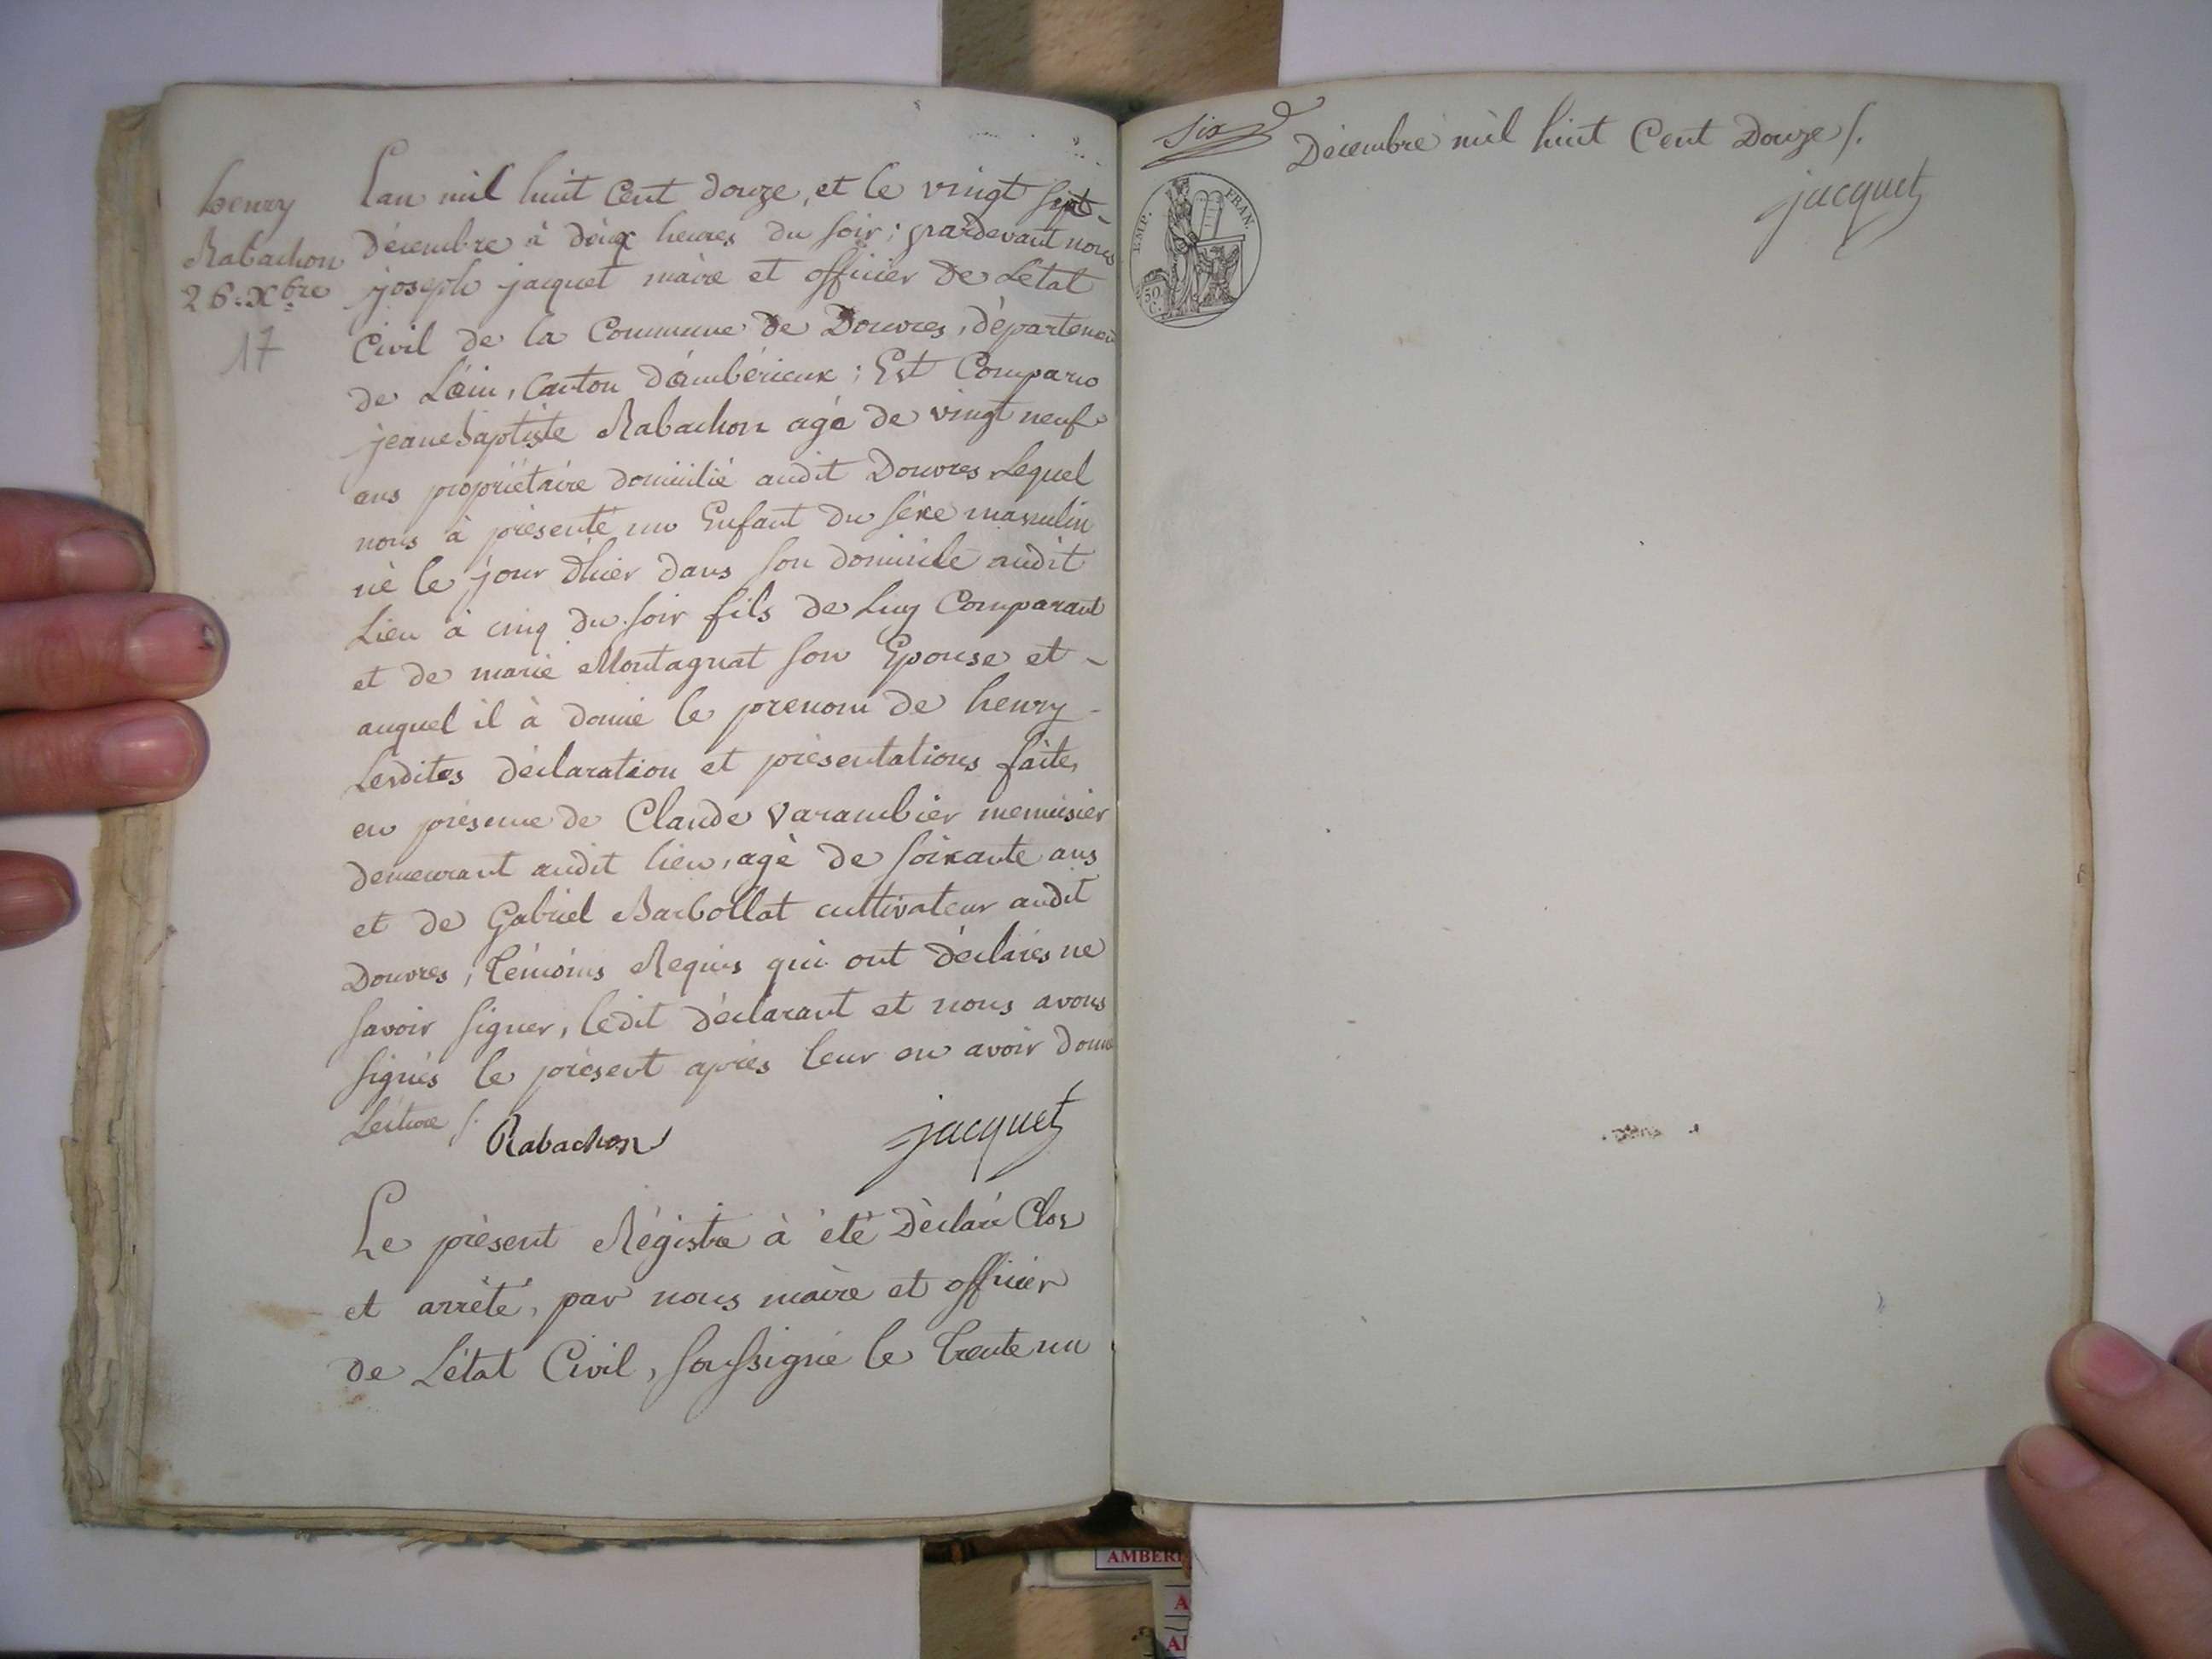 henry
Rabachon
26. Xbre
17
Lan mil huit Cent douze, et le vingt sept
décembre à deux heures du soir; pardevant nous
joseph jacquet maire et officier de Létat
Civil de la Commune de Douvres, départemen
de Lain, Canton dámbérieux; Est Comparu
jeanebaptiste Rabachon agé de vingt neuf
ans propriétaire domicilié audit Douvres Lequel
nous à présenté un Enfant du séxe masculin
né le jour d'hier dans son domicile audit
Lieu à cinq du soir fils de Luy Comparant
et de marie Montagnat son Epouse et -
auquel il à donné le prenom de henry -
Lesdites déclaration et présentations faites
en présence de Claude Varambier menuisier
demeurant audit lieu, agé de soixante ans
et de Gabriel Barbollat cultivateur audit
Douvres, témoins Requis qui ont déclarés ne
savoir signer, ledit déclarant et nous avons
signés le présent après leur en avoir donné
Lécture /.
Rabachon jacquet
Le présent Régistre à été Déclaré Clos
et arrêté, par nous maire et officier
de Létat Civil, soussigné le trente un
six
Décembre mil huit Cent Douze /.
jacquet
EMP. FRAN.
50
C.
AMBERI
A
AI